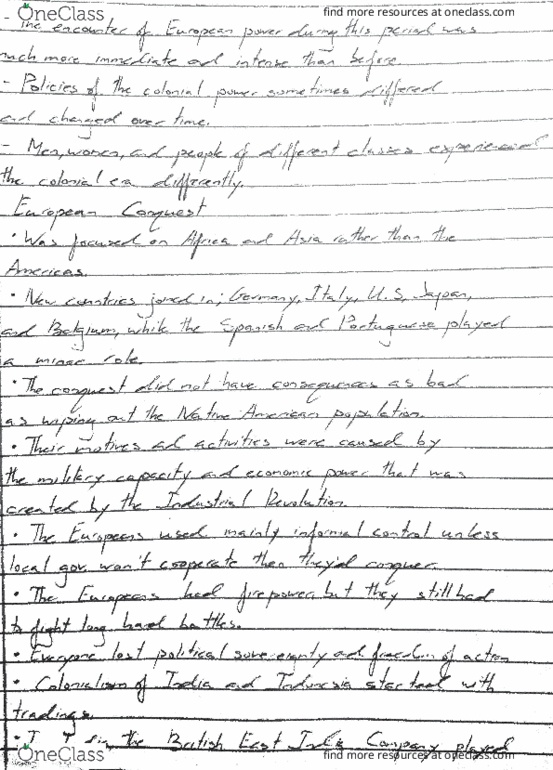 OneClass
find more resources at oneclass.com
- The encounter of European power during this period was
much more immediate and intense than before
- Policies of the colonial power sometimes differed
and changed over time.
- Men, women, and people of different classes experienced
the colonial era differently.
European Conquest
• Was focused on Africa and Asia rather than the
Americas.
• New countries joined in; Germany, Italy, U.S, Japan,
and Belgium, while the Spanish and Portuguese played
a minor role.
• The conquest did not have consequences as bad
as wiping out the Native American population.
• Their motives and activities were caused by
the military capacity and economic power that was
created by the Industrial Revolution.
• The Europeans used mainly informal control unless
local gov. won't cooperate then they'd conquer
• The Europeans had firepower but they still had
to fight long hard battles.
• Everyone lost political sovereignty and freedom of action
• Colonialism of India and Indonesia started with
tradings.
• the British East India Company played
OneClass
find more resources at oneclass.com